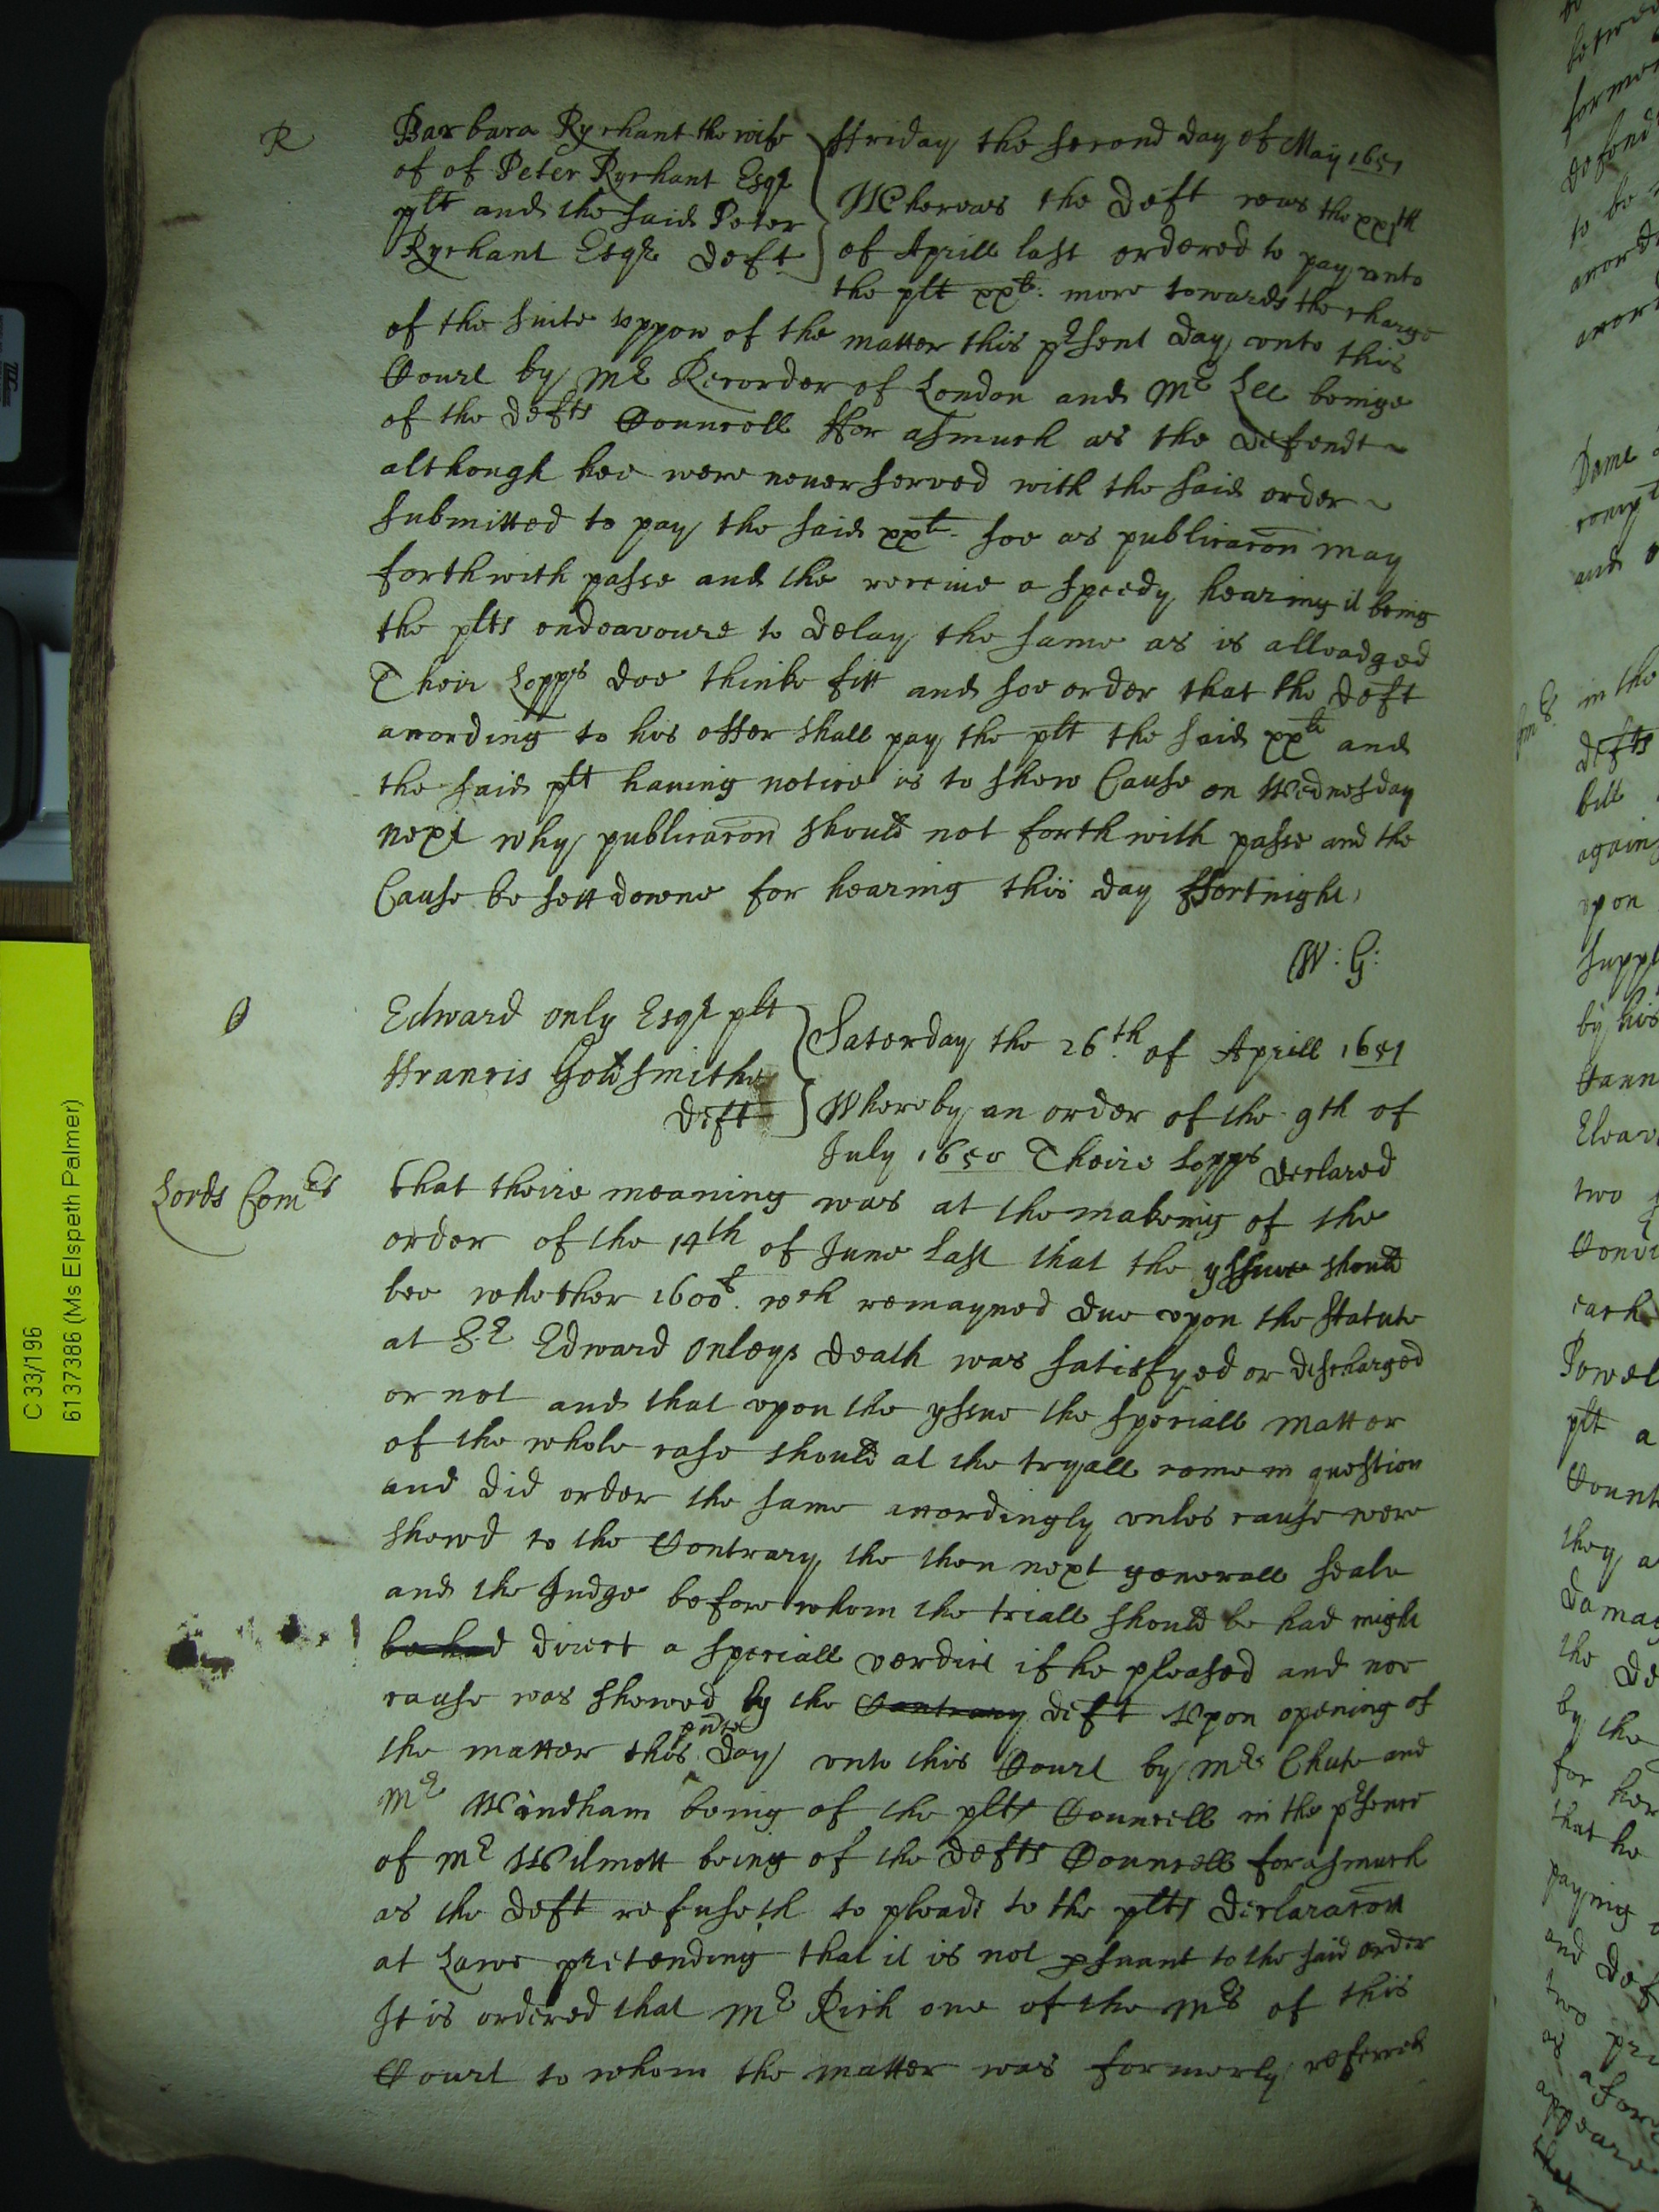 R
Barbara Rychant the wife
of of Peter Rychant Esqr
plt and the said Peter
Rychant Esqr Deft
ffriday the second day of May 1651
Whereas the Deft was the xxjth
of Aprill last ordered to pay vnto
the plt xxli: more towards the charge
of the suite vppon of the matter this prsent day vnto this
Court by Mr Recorder of London and Mr Lee beinge
of the Defts Councell ffor asmuch as the Defendt
although hee were neuer served with the said order
submitted to pay the said xxli. soe as publicacon may
forthwith passe and the receiue a speedy hearing it being
the plts endeavoure to delay the same as is alleadged
Their Lopps doe thinke fitt and soe order that the Deft
according to his offer shall pay the plt the said xxli and
the said plt hauing notice is to shew Cause on Wednesday
next why publicacon should not forthwith passe and the
Cause be sett downe for hearing this day ffortnight
W: G:
O
Edward Only Esqr plt
ffrancis Goldsmithe
Deft
Saterday the 26th of Aprill 1651
Whereby an order of the 9th of
July 1650 Theire Lopps declared
Lords Comrs
that theire meaning was at the makeing of the
order of the 14th of June last that the yssue should
bee whether 1600l. wch remayned due vpon the Statute
at Sr Edward Onleys death was satisfyed or discharged
or not and that vpon the yssue the speciall matter
of the whole case should at the tryall come in question
and did order the same accordingly vnles cause were
shewd to the Contrary the then next generall seale
and the Judge before whom the triall should be had might
be had direct a speciall verdict if he pleased and noe
cause was shewed by the Contrary deft Vpon opening of
the matter this prsente day vnto this Court by Mr Chute and
Mr Windham being of the plts Councell in the prsence
of Mr Wilmott being of the Defts Councell forasmuch
as the Deft refuseth to pleade to the plts Declaracon
at Lawe pretending that it is not psuant to the said order
It is ordered that Mr Rich one of the Mrs of this
Court to whom the matter was formerly referred
C 33/196
6137386 (Ms Elspeth Palmer)